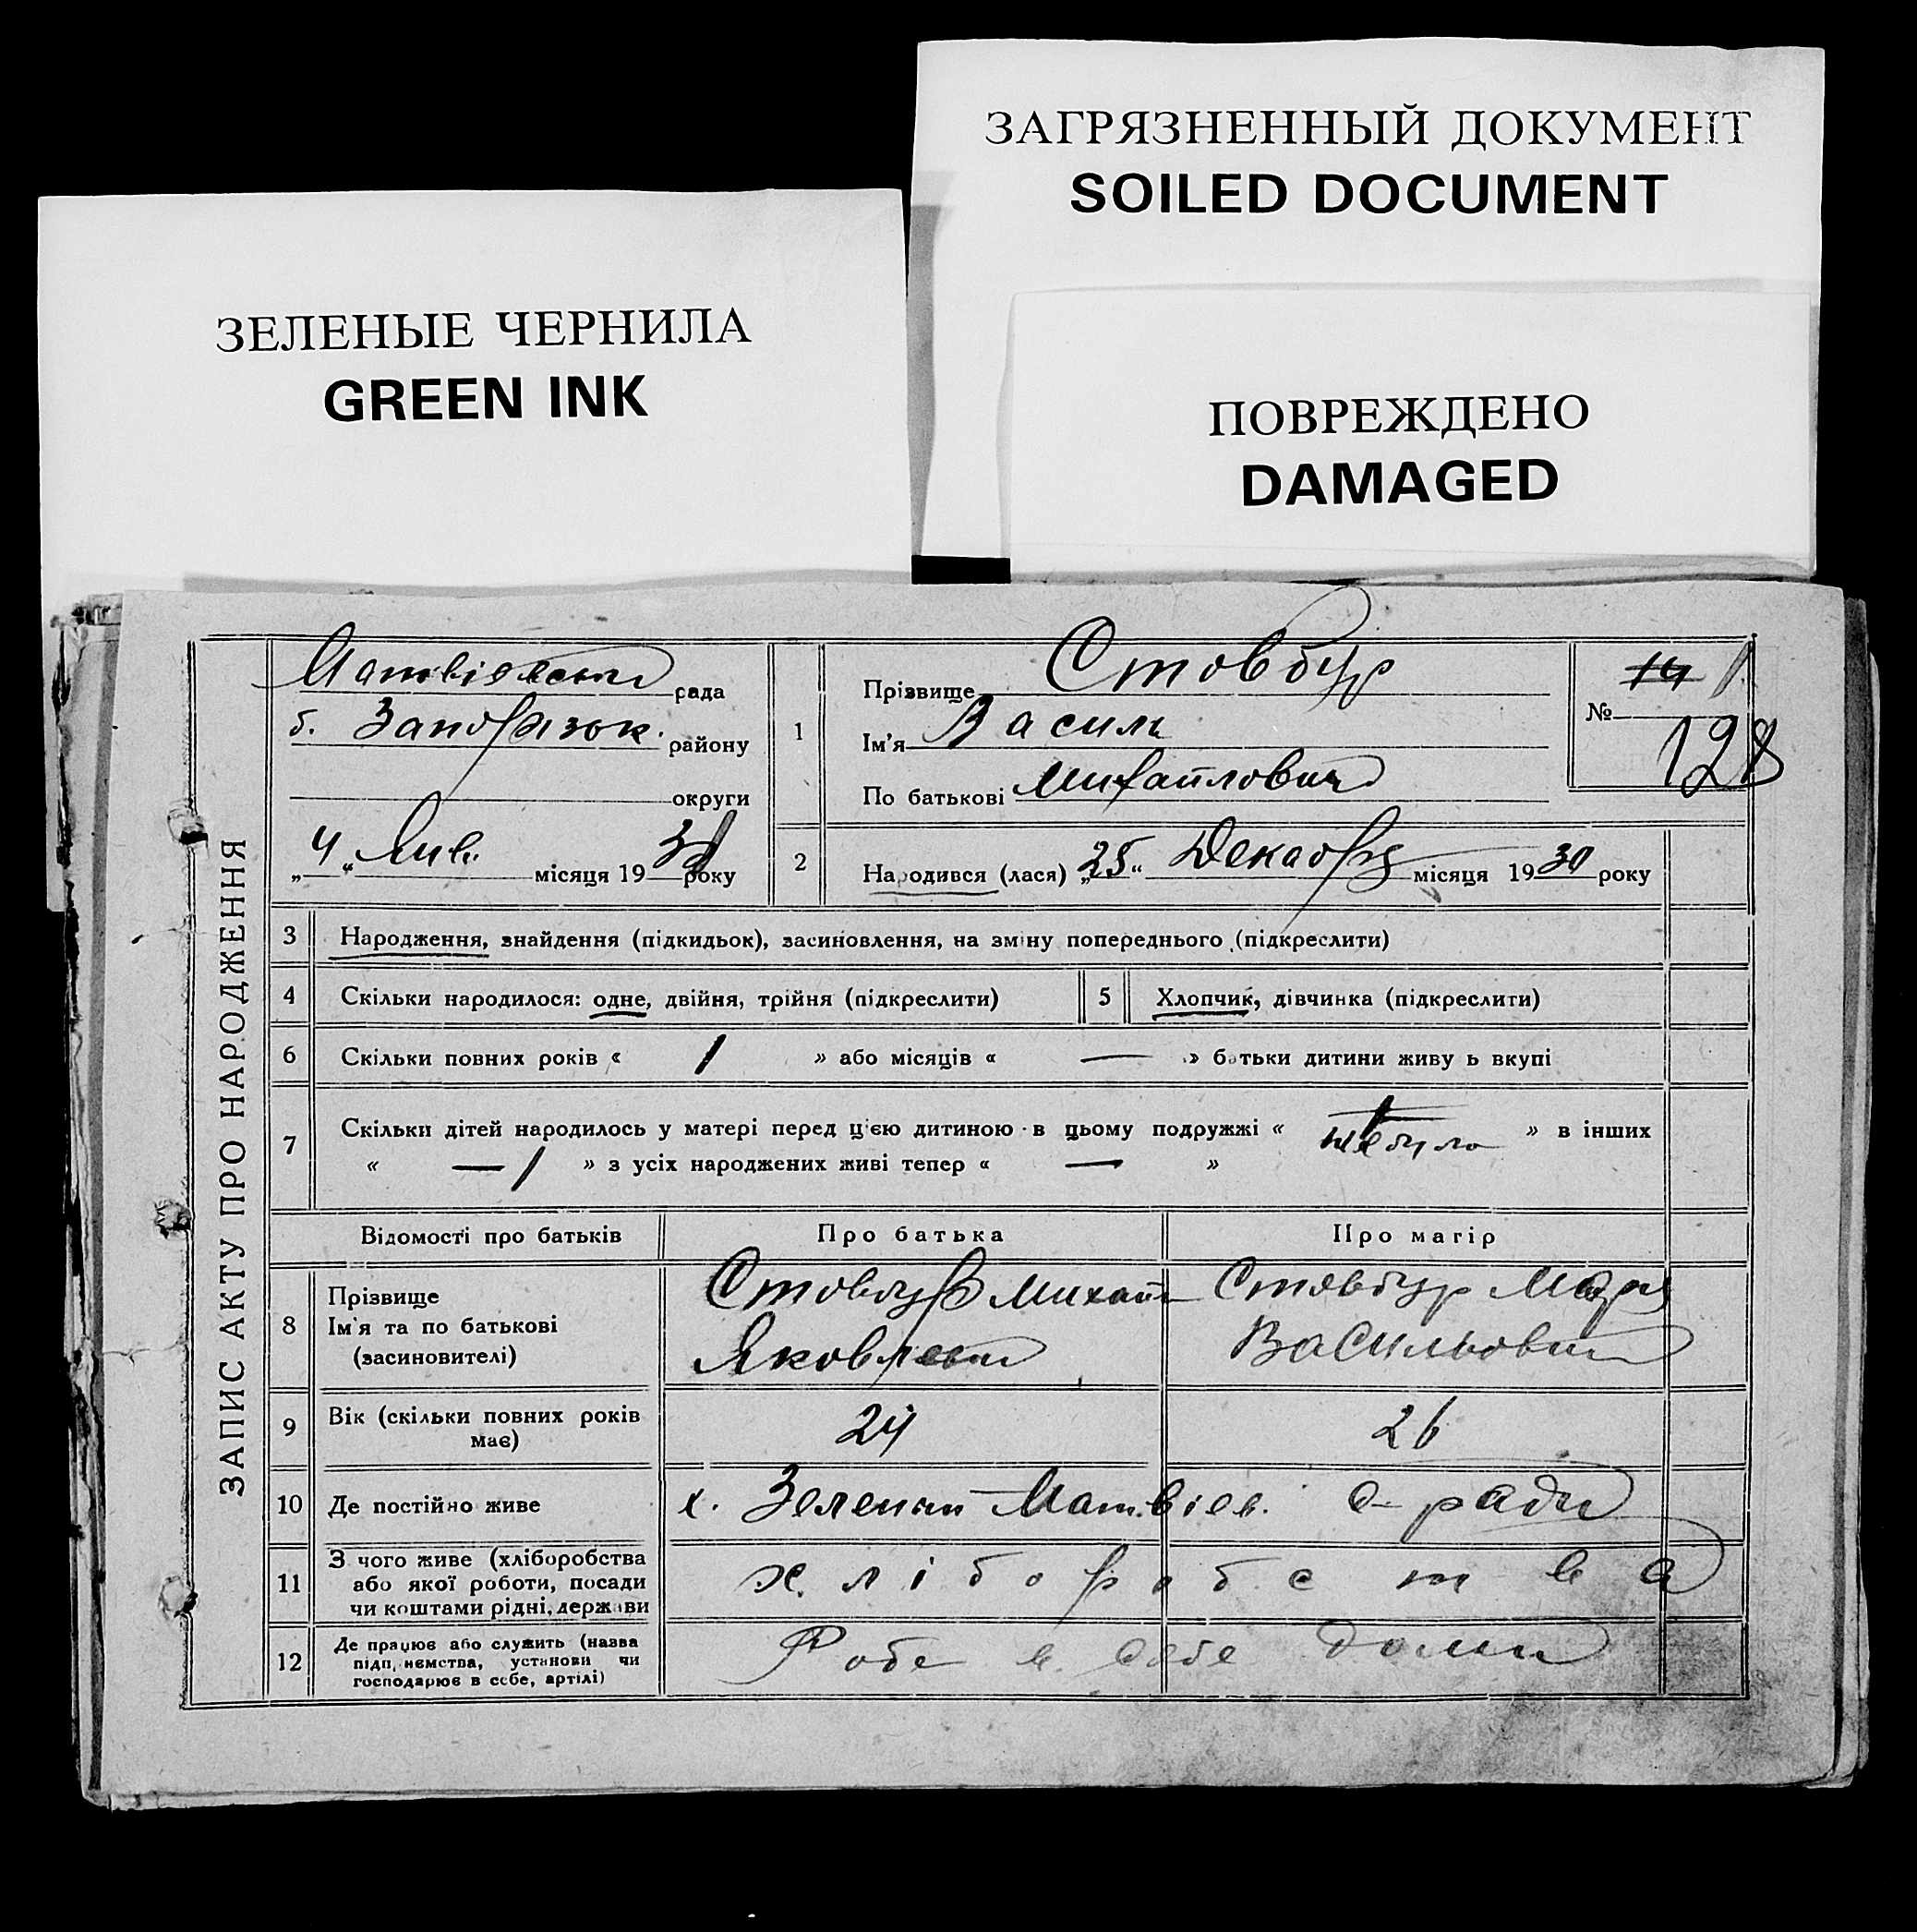 ЗАГРЯЗНЕННЫЙ ДОКУМЕНТ
SOILED DOCUMENT
ЗЕЛЕНЫЕ ЧЕРНИЛА
GREEN INK
ПОВРЕЖДЕНО
DAMAGED
ЗАПИС АКТУ ПРО НАРОДЖЕННЯ
рада
б. району
округи
„4“ Янв. місяця 1931 року
1 Прізвище Стовбур
Ім'я Василь
По батькові Михайлович
№ 14 1
128
2 Народився (лася) „25“ Декабря місяця 1930 року
3 Народження, знайдення (підкидьок), засиновлення, на зміну попереднього (підкреслити)
4 Скільки народилося: одне, двійня, трійня (підкреслити)
5 Хлопчик, дівчинка (підкреслити)
6 Скільки повних років « 1 » або місяців « — » батьки дитини живу ь вкупі
7 Скільки дітей народилось у матері перед цією дитиною в цьому подружжі « не було » в інших
« — » з усіх народжених живі тепер « — »
Відомості про батьків Про батька Про матір
8 Прізвище
Ім'я та по батькові
(засиновителі)
Стовбур Михайл
Яковлевич
Стовбур Марія
Васильовна
9 Вік (скільки повних років
має)
24 26
10 Де постійно живе х. Зелений Матвіев. с-ради
11 З чого живе (хліборобства
або якої роботи, посади
чи коштами рідні, держави
хліборобства
12 Де працює або служить (назва
підприємства, установи чи
господарює в себе, артілі)
Робе в себе дома